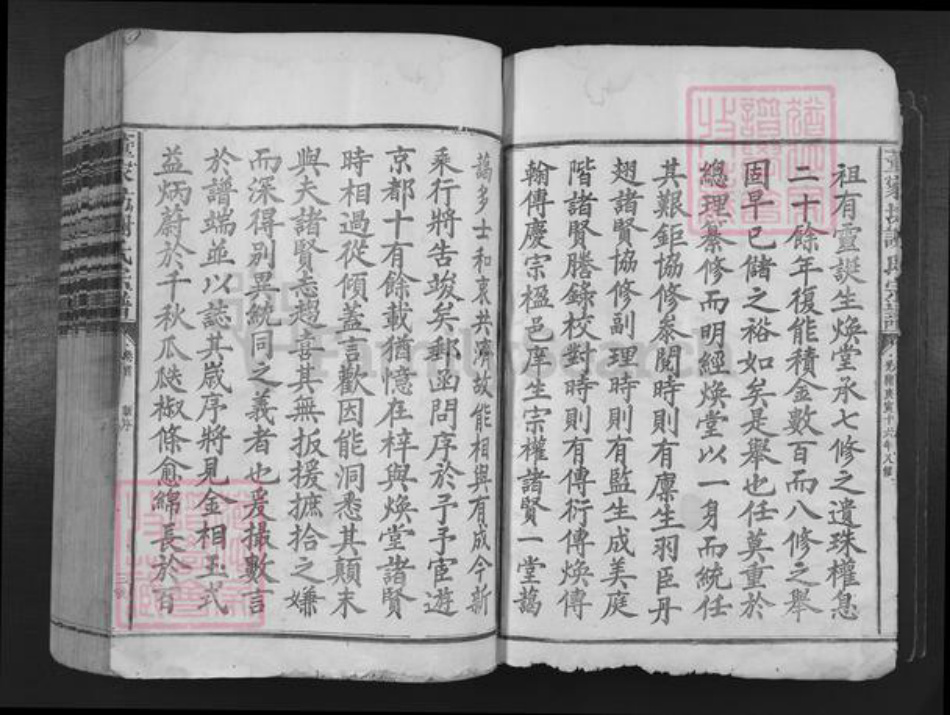 祖有霊誕生煥堂承七修之遺珠權息
二十餘年復能積金數百而八修之舉
固早已儲之裕如矣是舉也任莫重於
總理纂修而明經煥堂以一身而統任
其艱鉅協修叅閱時則有廪生羽臣丹
翅諸賢協修副理時則有監生成美庭
階諸賢謄錄校對時則有傳衍傳煥傳
翰傳慶宗楹邑庠生宗權諸賢一堂藹
藹多士和衷共濟故能相與有成今新
乘行將告竣矣郵函問序於予予宦遊
京都十有餘載猶憶在梓與煥堂諸賢
時相過從傾蓋言歡因能洞悉其顛末
與夫諸賢志趨喜其無扳援摭拾之嫌
而深得别異統同之義者也爰撮數言
於譜端並以誌其歲序將見金相玉式
益炳蔚於千秋瓜瓞椒條愈綿長於百
新序
FamilySearch